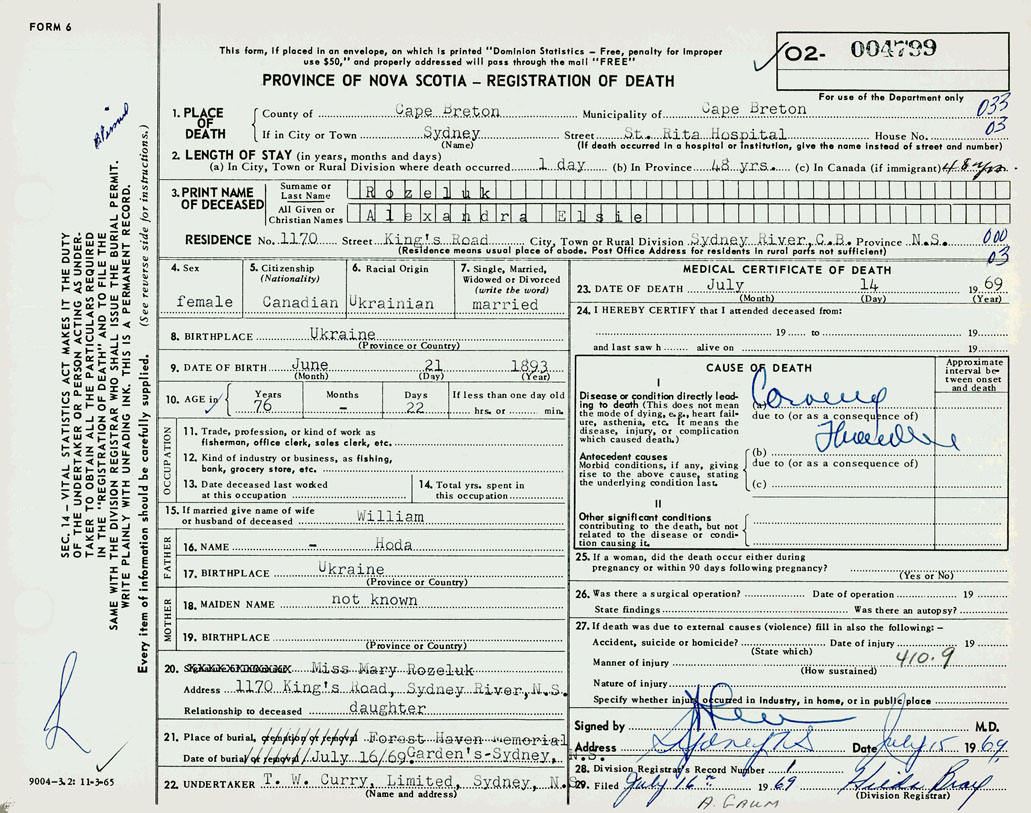 FORM 6
This form, if placed in an envelope, on which is printed "Dominion Statistics – Free, penalty for improper
use $50," and properly addressed will pass through the mail "FREE"
PROVINCE OF NOVA SCOTIA – REGISTRATION OF DEATH
02- 004799
For use of the Department only
033
03
1. PLACE OF DEATH
County of Cape Breton Municipality of Cape Breton
If in City or Town Sydney Street St. Rita Hospital House No.
(Name) (If death occurred in a hospital or institution, give the name instead of street and number)
2. LENGTH OF STAY (in years, months and days)
(a) In City, Town or Rural Division where death occurred 1 day (b) In Province 48 yrs. (c) In Canada (if immigrant) 48 yrs.
3. PRINT NAME OF DECEASED
Surname or Last Name Rozeluk
All Given or Christian Names Alexandra Elsie
RESIDENCE No. 1170 Street King's Road City, Town or Rural Division Sydney River, C.B. Province N.S.
(Residence means usual place of abode. Post Office Address for residents in rural parts not sufficient)
000
03
4. Sex
female
5. Citizenship
(Nationality)
Canadian
6. Racial Origin
Ukrainian
7. Single, Married,
Widowed or Divorced
(write the word)
married
8. BIRTHPLACE Ukraine
(Province or Country)
9. DATE OF BIRTH June 21 1893
(Month) (Day) (Year)
10. AGE in
Years Months Days If less than one day old
76 – 22 hrs. or min.
OCCUPATION
11. Trade, profession, or kind of work as
fisherman, office clerk, sales clerk, etc.
12. Kind of industry or business, as fishing,
bank, grocery store, etc.
13. Date deceased last worked
at this occupation
14. Total yrs. spent in
this occupation
15. If married give name of wife
or husband of deceased William
FATHER
16. NAME – Hoda
17. BIRTHPLACE Ukraine
(Province or Country)
MOTHER
18. MAIDEN NAME not known
19. BIRTHPLACE
(Province or Country)
20. Miss Mary Rozeluk
Address 1170 King's Road, Sydney River, N.S.
Relationship to deceased daughter
21. Place of burial, cremation or removal Forest Haven Memorial
Date of burial or removal July 16/69 Garden's-Sydney, N.S.
22. UNDERTAKER T. W. Curry, Limited, Sydney, N.S.
(Name and address)
MEDICAL CERTIFICATE OF DEATH
23. DATE OF DEATH July 14 1969
(Month) (Day) (Year)
24. I HEREBY CERTIFY that I attended deceased from:
19 to 19
and last saw h alive on 19
CAUSE OF DEATH
Approximate
interval be-
tween onset
and death
I
Disease or condition directly lead-
ing to death (This does not mean
the mode of dying, e.g., heart fail-
ure, asthenia, etc. It means the
disease, injury, or complication
which caused death.)
(a)
due to (or as a consequence of)
Antecedent causes
Morbid conditions, if any, giving
rise to the above cause, stating
the underlying condition last.
(b)
due to (or as a consequence of)
(c)
II
Other significant conditions
contributing to the death, but not
related to the disease or condi-
tion causing it.
25. If a woman, did the death occur either during
pregnancy or within 90 days following pregnancy?
(Yes or No)
26. Was there a surgical operation? Date of operation 19
State findings Was there an autopsy?
27. If death was due to external causes (violence) fill in also the following: –
Accident, suicide or homicide? Date of injury 19
(State which)
Manner of injury 410.9
(How sustained)
Nature of injury
Specify whether injury occurred in industry, in home, or in public place
Signed by M.D.
Address Sydney NS Date July 15 1969
28. Division Registrar's Record Number 1
29. Filed July 16th 1969 Hilda Bray
(Division Registrar)
A. GAUM
SEC. 14 – VITAL STATISTICS ACT MAKES IT THE DUTY
OF THE UNDERTAKER OR PERSON ACTING AS UNDER-
TAKER TO OBTAIN ALL THE PARTICULARS REQUIRED
IN THE "REGISTRATION OF DEATH" AND TO FILE THE
SAME WITH THE DIVISION REGISTRAR WHO SHALL ISSUE THE BURIAL PERMIT.
WRITE PLAINLY WITH UNFADING INK. THIS IS A PERMANENT RECORD.
Every item of information should be carefully supplied. (See reverse side for instructions.)
9004-3.2: 11-3-65